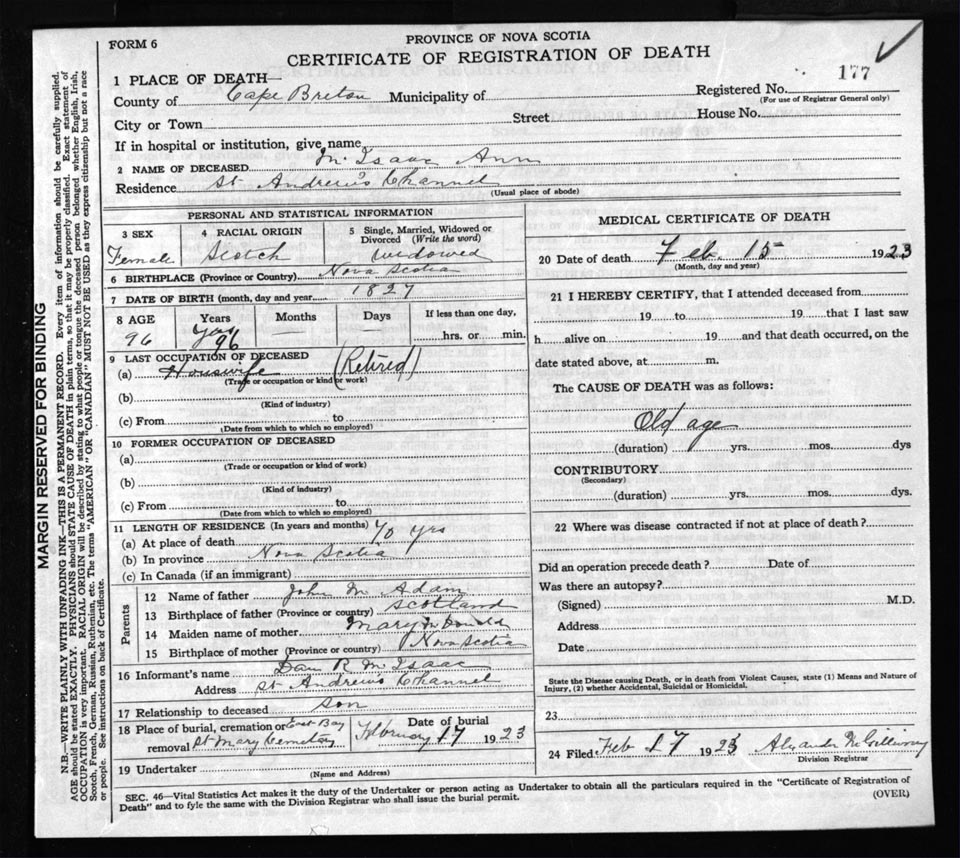 FORM 6
PROVINCE OF NOVA SCOTIA
CERTIFICATE OF REGISTRATION OF DEATH
177
1 PLACE OF DEATH—
County of Cape Breton Municipality of
Registered No.
(For use of Registrar General only)
City or Town Street House No.
If in hospital or institution, give name
2 NAME OF DECEASED Mc Isaac Ann
Residence St Andrew's Channel
(Usual place of abode)
PERSONAL AND STATISTICAL INFORMATION
3 SEX 4 RACIAL ORIGIN 5 Single, Married, Widowed or Divorced (Write the word)
Female Scotch widowed
6 BIRTHPLACE (Province or Country) Nova Scotia
7 DATE OF BIRTH (month, day and year) 1827
8 AGE Years Months Days If less than one day,
96 96 — — hrs. or min.
9 LAST OCCUPATION OF DECEASED
(a) Housewife (Retired)
(Trade or occupation or kind of work)
(b)
(Kind of industry)
(c) From to
(Date from which to which so employed)
10 FORMER OCCUPATION OF DECEASED
(a)
(Trade or occupation or kind of work)
(b)
(Kind of industry)
(c) From to
(Date from which to which so employed)
11 LENGTH OF RESIDENCE (In years and months)
(a) At place of death yrs
(b) In province Nova Scotia
(c) In Canada (if an immigrant)
Parents
12 Name of father John Mc Adam
13 Birthplace of father (Province or country) Scotland
14 Maiden name of mother Mary McDonald
15 Birthplace of mother (Province or country) Nova Scotia
16 Informant's name Dan R. Mc Isaac
Address St Andrews Channel
17 Relationship to deceased son
18 Place of burial, cremation or removal East Bay St Mary Cemetery
Date of burial February 17 1923
19 Undertaker
(Name and Address)
MEDICAL CERTIFICATE OF DEATH
20 Date of death Feb. 15 1923
(Month, day and year)
21 I HEREBY CERTIFY, that I attended deceased from
19 to 19 that I last saw
h alive on 19 and that death occurred, on the
date stated above, at m.
The CAUSE OF DEATH was as follows:
Old age
(duration) yrs. mos. dys
CONTRIBUTORY
(Secondary)
(duration) yrs. mos. dys.
22 Where was disease contracted if not at place of death?
Did an operation precede death? Date of
Was there an autopsy?
(Signed) M.D.
Address
Date
State the Disease causing Death, or in death from Violent Causes, state (1) Means and Nature of
Injury, (2) whether Accidental, Suicidal or Homicidal.
23
24 Filed Feb 17 1923 Alexander McGillivray
Division Registrar
SEC. 46—Vital Statistics Act makes it the duty of the Undertaker or person acting as Undertaker to obtain all the particulars required in the "Certificate of Registration of
Death" and to fyle the same with the Division Registrar who shall issue the burial permit.
(OVER)
MARGIN RESERVED FOR BINDING
N.B.—WRITE PLAINLY WITH UNFADING INK—THIS IS A PERMANENT RECORD. Every item of information should be carefully supplied.
AGE should be stated EXACTLY. PHYSICIANS should STATE CAUSE OF DEATH in plain terms, so that it may be properly classified. Exact statement of
OCCUPATION is very important. RACIAL ORIGIN will be described by stating to what people or tongue the deceased person belonged whether English, Irish,
Scotch, French, German, Russian, Ruthenian, etc. The terms "AMERICAN" OR "CANADIAN" MUST NOT BE USED as they express citizenship but not a race
or people. See instructions on back of Certificate.